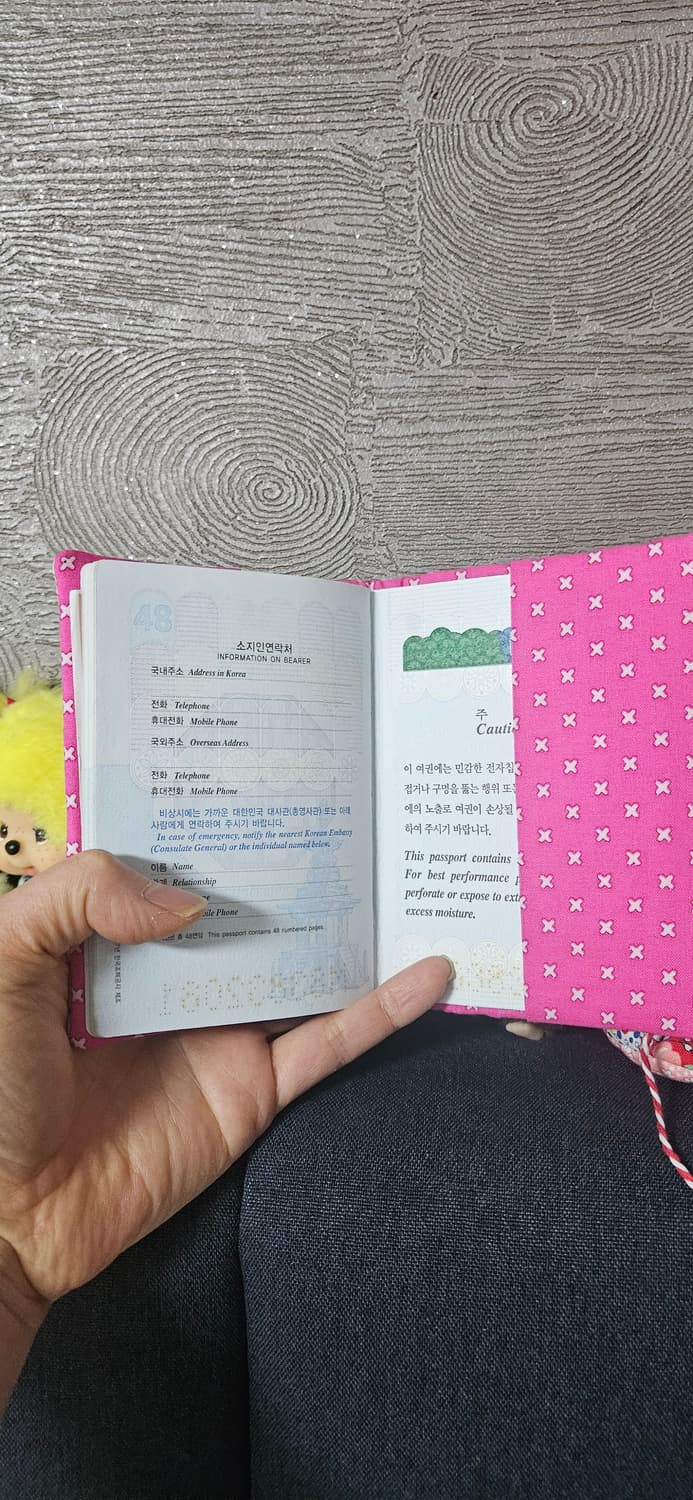 48
소지인연락처
INFORMATION ON BEARER
국내주소 Address in Korea
전화 Telephone
휴대전화 Mobile Phone
국외주소 Overseas Address
전화 Telephone
휴대전화 Mobile Phone
비상시에는 가까운 대한민국 대사관(총영사관) 또는 아래
사람에게 연락하여 주시기 바랍니다.
In case of emergency, notify the nearest Korean Embassy
(Consulate General) or the individual named below.
이름 Name
Relationship
Phone
총 48면임 This passport contains 48 numbered pages.
주
이 여권에는 민감한
접거나 구멍을 뚫는 행위
에의 노출로 여권이 손상될
하여 주시기 바랍니다.
This passport contains
For best performance
perforate or expose to
excess moisture.